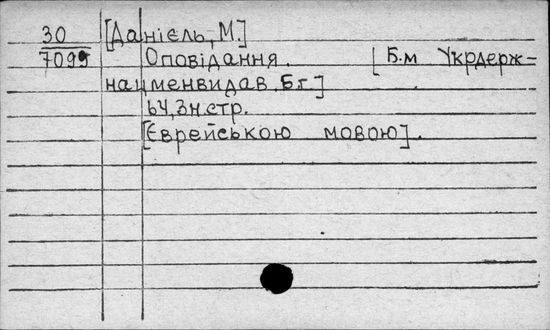 30 [Даніель, М.]
7099 Оповідання. [Б.м Укрдерж=
нацменвидав. Б.г.]
64, 3н.стр.
[Єврейською мовою].